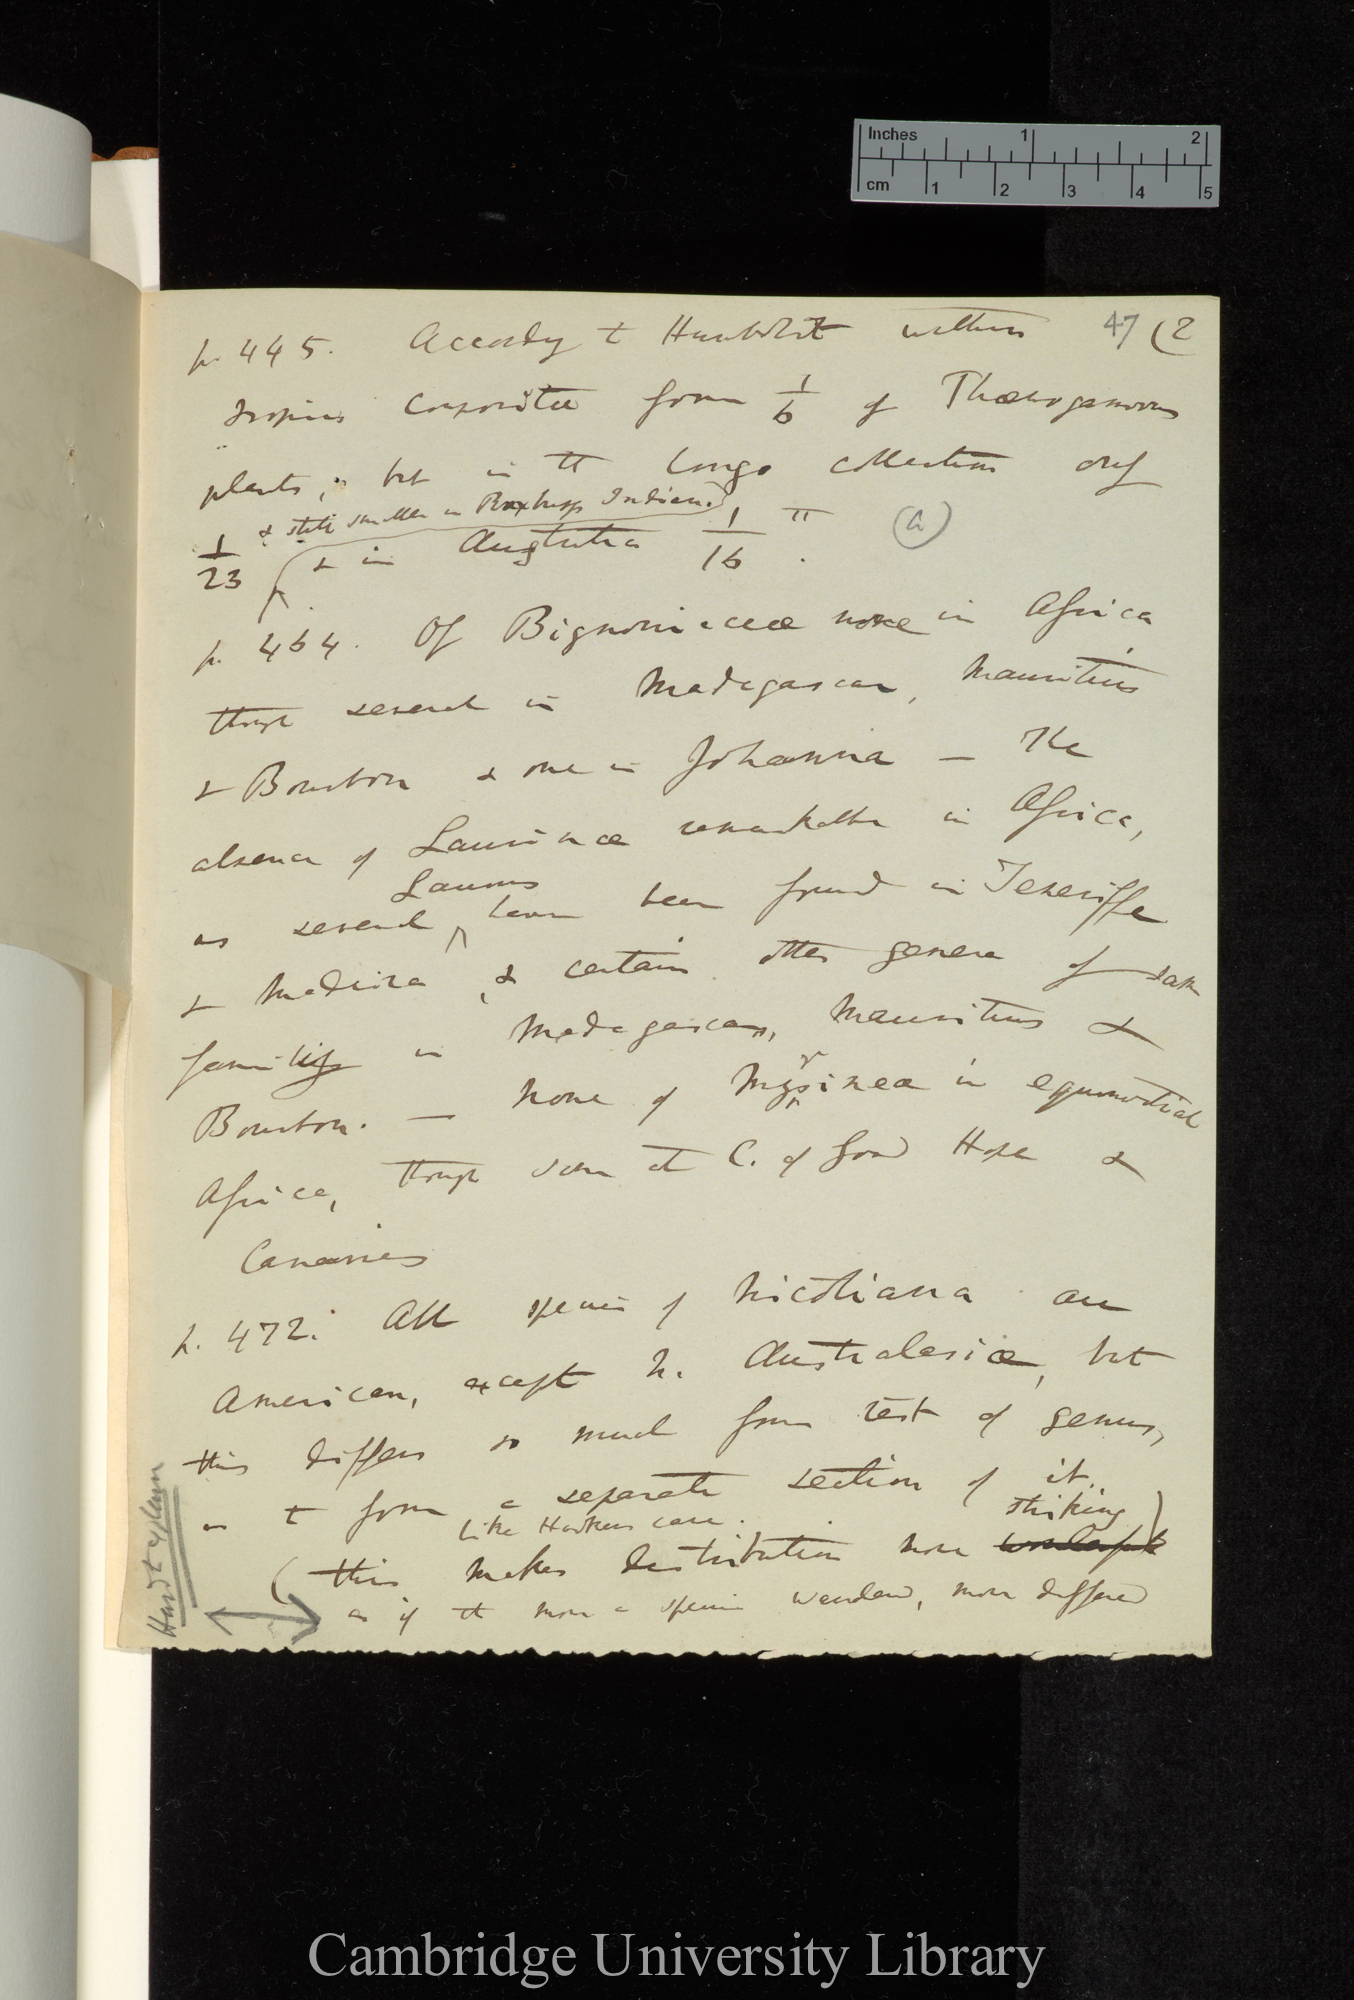 Inches 1 2
cm 1 2 3 4 5
47 (2
p. 445. According to Humboldt within
tropics Compositæ form 1/6 of Phænogamous
plants, but in tt Congo collection only
& still smaller in Roxburgs Indian.
1/23 & in Australia 1/16 tt. (a)
p. 464. Of Bignoniaceæ none in Africa
though several in Madagascar, Mauritius
& Bourbon & one in Johanna — The
absence of Laurinæ remarkable in Africa,
Laurus
as several have been found in Teneriffe
& Madeira, & certain other genera of same
family in Madagascar, Mauritius &
Bourbon. — None of Myrsineæ in equinoctial
Africa, though some at C. of Good Hope &
Canaries
p. 472. All species of Nicotiana are
American, except N. Australasiæ, but
this differs so much from rest of genus,
as to form a separate section of it.
like Hookers case. striking
(this makes distribution more wonderful)
as if the more a species wandered, more differed
Hard to explain
Cambridge University Library